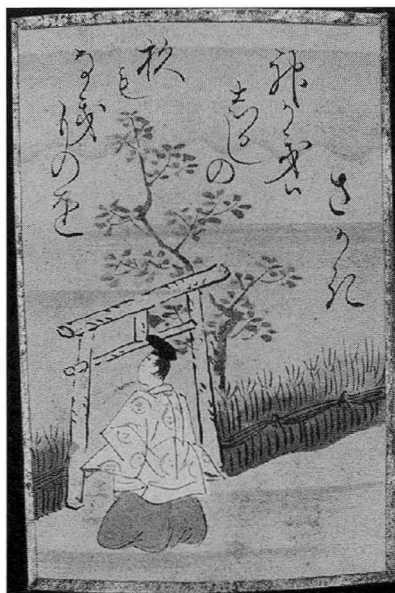 さかき
神かきは
志るしの
杉も
なきものを